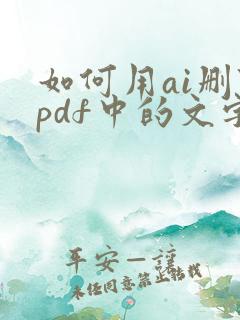 如何用ai删
pdf中的文字
平安一诺
未经同意禁止转载